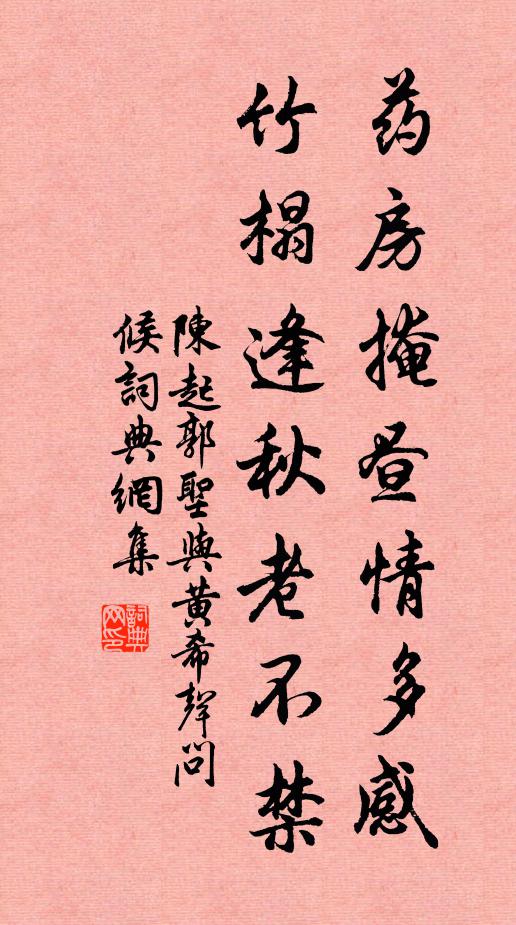 药房掩昼情多感
竹榻逢秋老不禁
陳起郭聖與黄希聲問
候詞典網集
詞典
网印